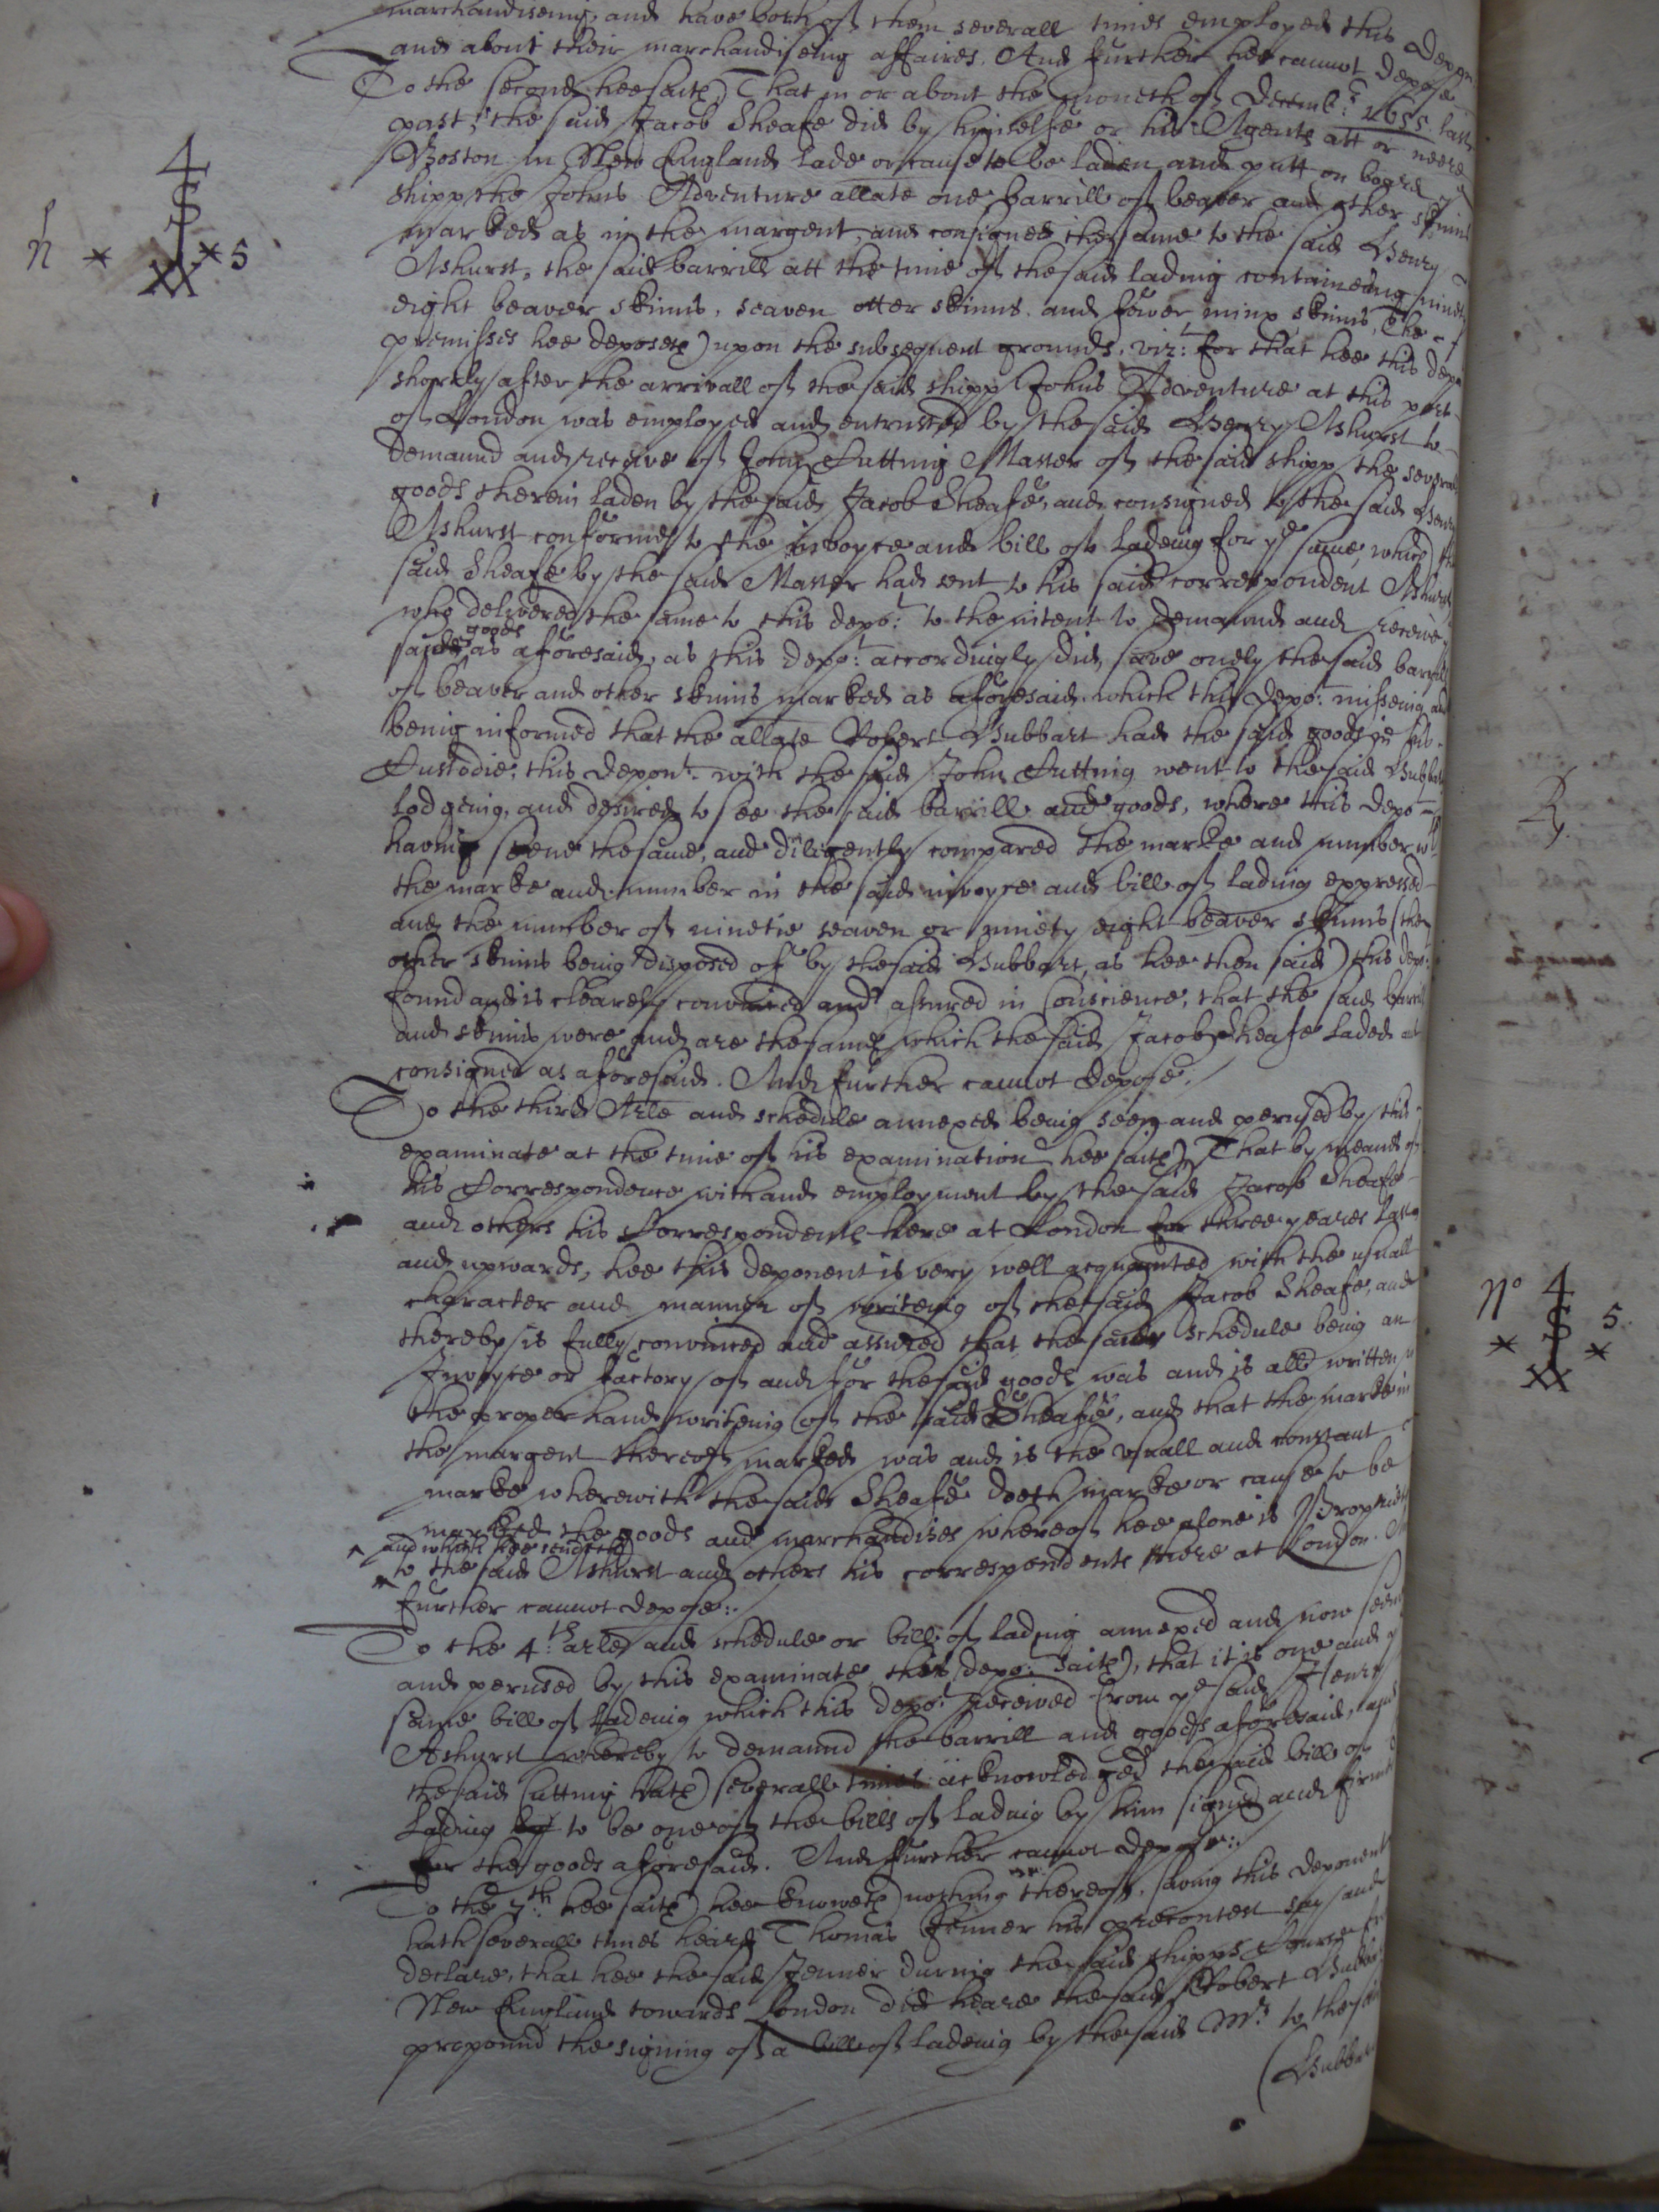 marchandiseing, and have both of them severall times employed this depon
and about their marchandiseing affaires. And further hee cannot depose
To the second hee saith That in or about the moneth of Decemb:r 1655 last
past, the said Jacob Sheafe did by himselfe or his Agents att or neere
Boston in New England lade or cause to be laden and putt on board
shipp the Johns Adventure allate one barrill of beaver and other skinns
marked as in the margent, and consigned the same to the said Henry
Ashurst, the said barrill att the time of the said lading containeing ninety
eight beaver skinns, seaven otter skinns and fower minx skinns, The
premisses hee deposeth upon the subsequent grounds, viz:t for that hee this depo
shortly after the arrivall of the said shipp Johns Adventure at this port
of London was employed and entrusted by the said Henry Ashurst to
demaund and receive of John Cutting Master of the said shipp the severall
goods therein laden by the said Jacob Sheafe, and consigned to the said Henry
Ashurst conforme to the invoyce and bill of Ladeing for ye same, which the
said Sheafe by the said Master had sent to his said correspondent Ashurst
who delivered the same to this depo:t to the intent to demaund and receive
goods
said as aforesaid, as this depo:t accordingly did, save onely the said barrill
of beaver and other skinns marked as aforesaid. which this depo:t misseing and
being informed that the allate Robert Hubbart had the said goods in his
Custodie, this depon:t with the said John Cutting went to the said Hubbarts
lodgeing, and desired to see the said barrill and goods, where this depo:t
having seene the same, and diligently compared the marke and number wth
the marke and number in the said invoyce and bill of lading expressed
and the number of ninetie seaven or ninety eight beaver skinns (the
other skinns being disposed of by the said Hubbart, as hee then said) this depo:t
found and is clearely convinced and assured in Conscience, that the said barrill
and skinns were and are the same which the said Jacob Sheafe laded and
consigned as aforesaid. And further cannot depose.
To the third Arle and schedule annexed being seen and perused by this
examinate at the time of his examination hee saith That by meanes of
his Correspondence with and employment by the said Jacob Sheafe
and others his Correspondents here at London for three yeares last
and upwards, hee this deponent is very well acquainted with the usuall
character and manner of writeing of the said Jacob Sheafe, and
thereby is fully convinced and assured that the said schedule being an
Invoyce or factory of and for the said goods was and is all written
the proper hand writeing of the said Sheafe, and that the marke in
the margent thereof marked was and is the usuall and constant
marke wherewith the said Sheafe doeth marke or cause to be
marked the goods and marchandizes whereof hee alone is Proprietr
and which hee sendeth
to the said Ashurst and others his correspondents here at London. And
further cannot depose:
To the 4:th arle and schedule or bill of lading annexed and now seene
and perused by this examinate this depo:t saith, that it is one and ye
same bill of ladeing which this depo:t received from ye said Henry
Ashurst whereby to demaund the barrill and goods aforesaid, and
the said Cutting hath severall times acknowledged the said bill of
Lading to be one of the bills of lading by him signed and firmed
for the goods aforesaid. And further cannot depose:
To the 7:th hee saith hee knoweth nothing thereof, saving this deponent
hath severall times heard Thomas Jenner his precontest say and
declare, that hee the said Jenner during the said shipps Course from
New England towards London did heare the said Robert Hubbart
propound the signing of a bill of ladeing by the said Mr. to the said
(Hubbart
h 4 S * * 5 XX
R.
No 4 S 5. * * XX